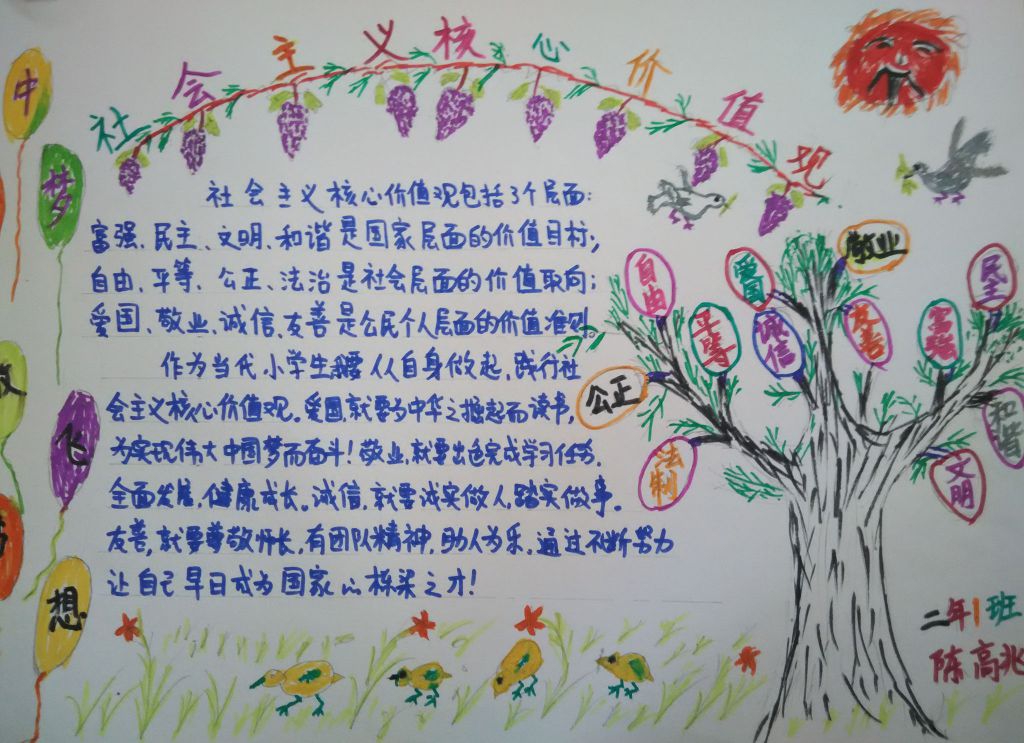 社会主义核心价值现
中
梦
飞
想
社会主义核心价值观包括3个层面:
富强、民主、文明、和谐是国家层面的价值目标;
自由、平等、公正、法治是社会层面的价值取向;
爱国、敬业、诚信、友善是公民个人层面的价值准则。
作为当代小学生腰从自身做起,践行社
会主义核心价值观。爱国,就要为中华之掘起而读书,
为实现伟大中国梦而奋斗!敬业,就要出色完成学习任务,
全面发展,健康成长。诚信,就要诚实做人,踏实做事。
友善,就要尊敬师长,有团队精神,助人为乐,通过不断努力
让自己早日成为国家的栋梁之才!
敬业
自由
爱国
民主
平等
诚信
友善
富强
公正
和谐
法制
文明
二年1班
陈高兆